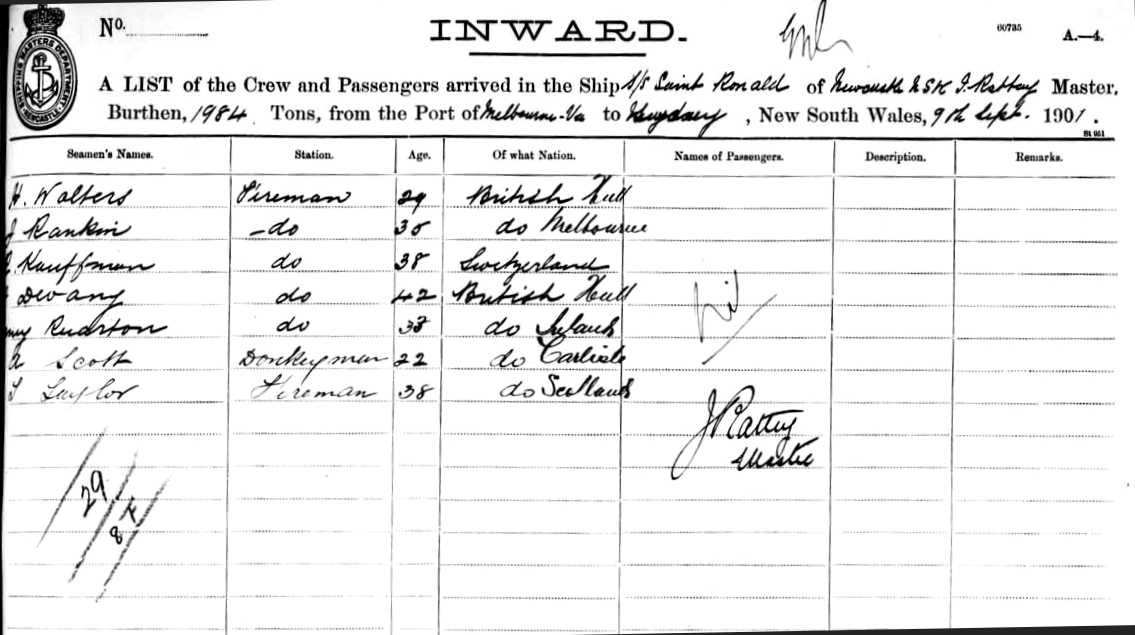 No.
INWARD.
60735
A.—4.
SHIPPING MASTERS DEPARTMENT NEWCASTLE
A LIST of the Crew and Passengers arrived in the Ship S/S Saint Ronald of Newcastle NSW J. Rattray Master,
Burthen, 1984 Tons, from the Port of Melbourne-Vic to , New South Wales, 9th Sept. 1901.
St 951
Seamen's Names. Station. Age. Of what Nation. Names of Passengers. Description. Remarks.
H. Walters Fireman 29 British Hull
J Rankin -do 35 do Melbourne
Kauffman do 38 Switzerland
do 42 British Hull
do do Ireland
A Scott Donkeyman 22 do Carlisle
T Taylor Fireman 38 do Scotland
nil
J Rattray
Master
29
84